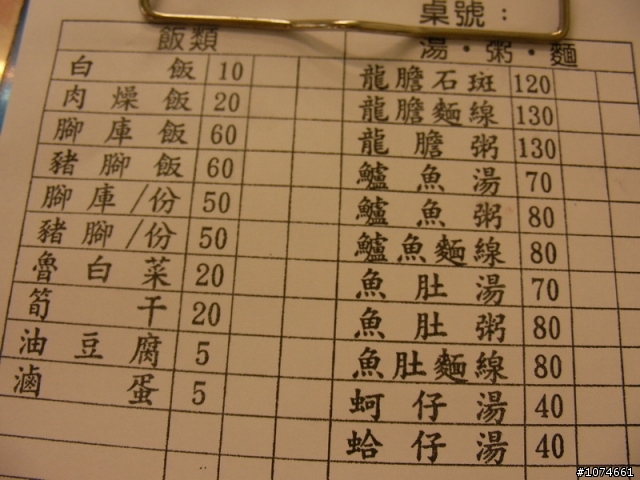 桌號：
飯類
白飯 10
肉燥飯 20
腳庫飯 60
豬腳飯 60
腳庫/份 50
豬腳/份 50
魯白菜 20
筍干 20
油豆腐 5
滷蛋 5
湯·粥·麵
龍膽石斑 120
龍膽麵線 130
龍膽粥 130
鱸魚湯 70
鱸魚粥 80
鱸魚麵線 80
魚肚湯 70
魚肚粥 80
魚肚麵線 80
蚵仔湯 40
蛤仔湯 40
#1074661